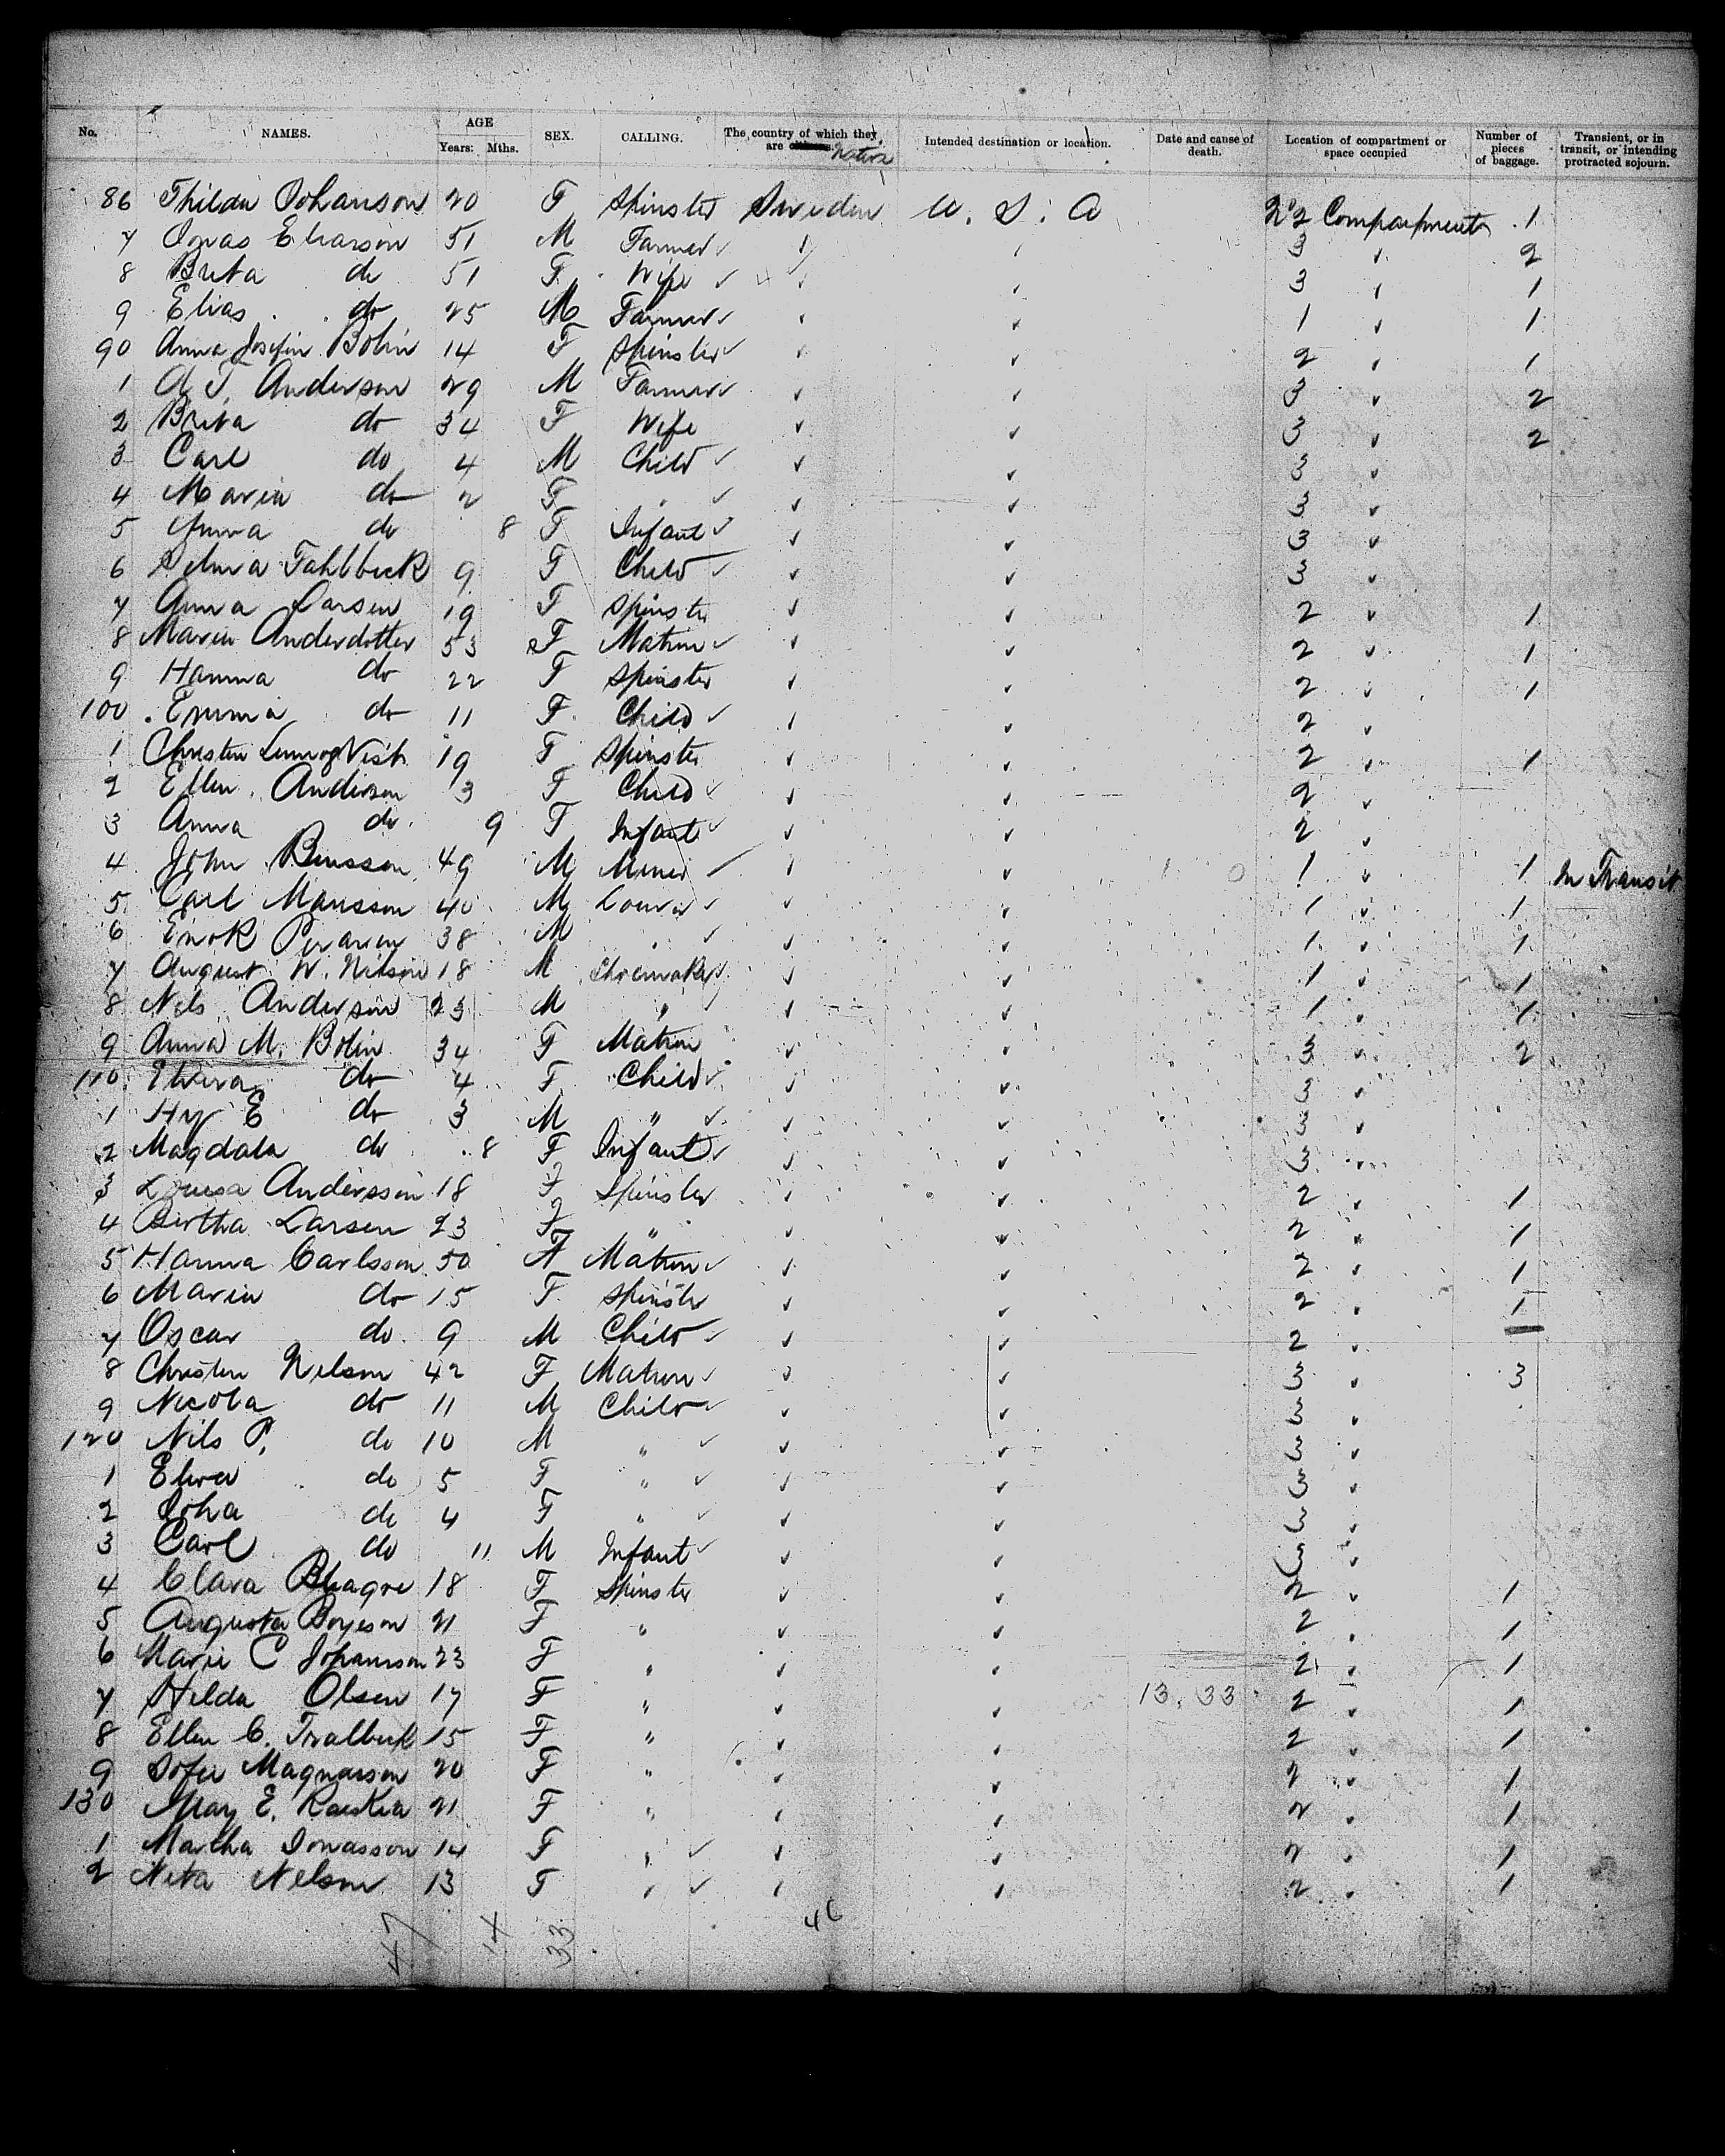 No. NAMES. AGE Years: Mths. SEX. CALLING. The country of which they are Native Intended destination or location. Date and cause of death. Location of compartment or space occupied Number of pieces of baggage. Transient, or in transit, or intending protracted sojourn.
86 Thilda Johanson 20 F Spinster Sweden U. S. A 2 Compartment 1
7 Jonas Eliason 51 M Farmer 3 2
8 Brita do 51 F Wife 3 1
9 Elias do 25 M Farmer 1 1
90 Anna Josefin Bolin 14 F Spinster 2 1
1 A. T. Anderson 29 M Farmer 3 2
2 Brita do 34 F Wife 3 2
3 Carl do 4 M Child 3
4 Maria do 2 F " 3
5 Anna do 8 F Infant 3
6 Selma Fahlbeck 9 F Child 3
7 Anna Larsen 19 F Spinster 2 1
8 Maria Anderdotter 53 F Matron 2 1
9 Hanna do 22 F Spinster 2 1
100 Emma do 11 F Child 2
1 Christin 19 F Spinster 2 1
2 Ellen Anderson 3 F Child 2
3 Anna do 9 F Infant 2
4 John Bensson 49 M Miner 1 1 In Transit
5 Carl Mansson 40 M 1 1
6 Enok 38 M 1 1
7 August W. Nilson 18 M Shoemaker 1 1
8 Nels Anderson 23 M " 1 1
9 Anna M. Bolin 34 F Matron 3 2
110 Elvira do 4 F Child 3
1 Hy E do 3 M " 3
2 Magdala do 8 F Infant 3
3 Louisa Andersson 18 F Spinster 2 1
4 Bertha Larsen 23 F " 2 1
5 Hanna Carlsson 50 F Matron 2 1
6 Maria do 15 F Spinster 2 1
7 Oscar do 9 M Child 2
8 Christin Nelson 42 F Matron 3 3
9 Nicola do 11 M Child 3
120 Nils P. do 10 M " 3
1 Elva do 5 F " 3
2 Joha do 4 F " 3
3 Carl do 11 M Infant 3
4 Clara 18 F Spinster 2 1
5 Augusta Boyeson 21 F " 2 1
6 Marie C Johannson 23 F " 2 1
7 Hilda Olsen 17 F " 13. 33 2 1
8 Ellen C. 15 F " 2 1
9 Sofie Magnusson 20 F " 2 1
130 May E. 21 F " 2 1
1 Martha Jonasson 14 F " 2 1
2 Neta Nelson 13 F " 2 1
47 14 33 46